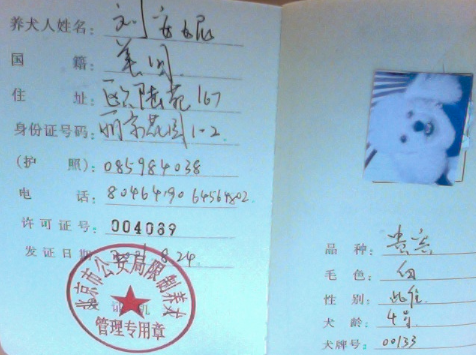 养犬人姓名:刘
国 籍:美国
住 址:欧陆苑167
身份证号码:丽京花园1-2
(护 照):085984038
电 话:80464190 64564802
许可证号:004039
发证日期 8.24
北京市公安局限制养犬
管理专用章
品 种:贵宾
毛 色:白
性 别:雄
犬 龄:4岁
犬牌号:00133